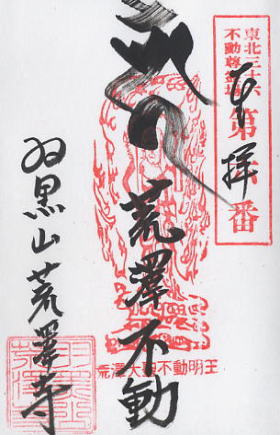 東北三十六
不動尊霊場
第六番
奉拝
荒澤不動
荒澤大聖不動明王
羽黒山荒澤寺